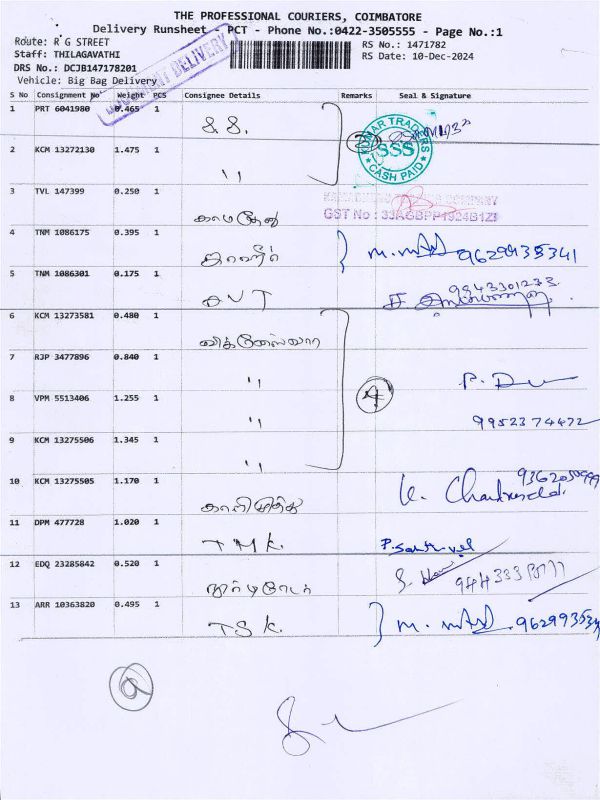 THE PROFESSIONAL COURIERS, COIMBATORE
Delivery Runsheet - PCT - Phone No.:0422-3505555 - Page No.:1
Route: R G STREET
RS No.: 1471782
Staff: THILAGAVATHI
RS Date: 10-Dec-2024
DRS No.: DCJB147178201
Vehicle: Big Bag Delivery
DELIVERY
S No Consignment No Weight PCS Consignee Details Remarks Seal & Signature
1 PRT 6041980 0.465 1 S.S.
KUMAR TRADERS
SSS
CASH PAID
2 KCM 13272130 1.475 1 ''
3 TVL 147399 0.250 1 காமதேனு
COMPANY
GST No : 33AGBPP1924B1ZI
4 TNM 1086175 0.395 1 9629935341
5 TNM 1086301 0.175 1 9943301273
6 KCM 13273581 0.480 1 விக்னேஸ்வரா
7 RJP 3477896 0.840 1 ''
4
8 VPM 5513406 1.255 1 '' 9952374472
9 KCM 13275506 1.345 1 ''
10 KCM 13275505 1.170 1 காளிமுத்து
11 DPM 477728 1.020 1 T M K. P. Senthivel
12 EDQ 23285842 0.520 1
13 ARR 10363820 0.495 1 T S K.